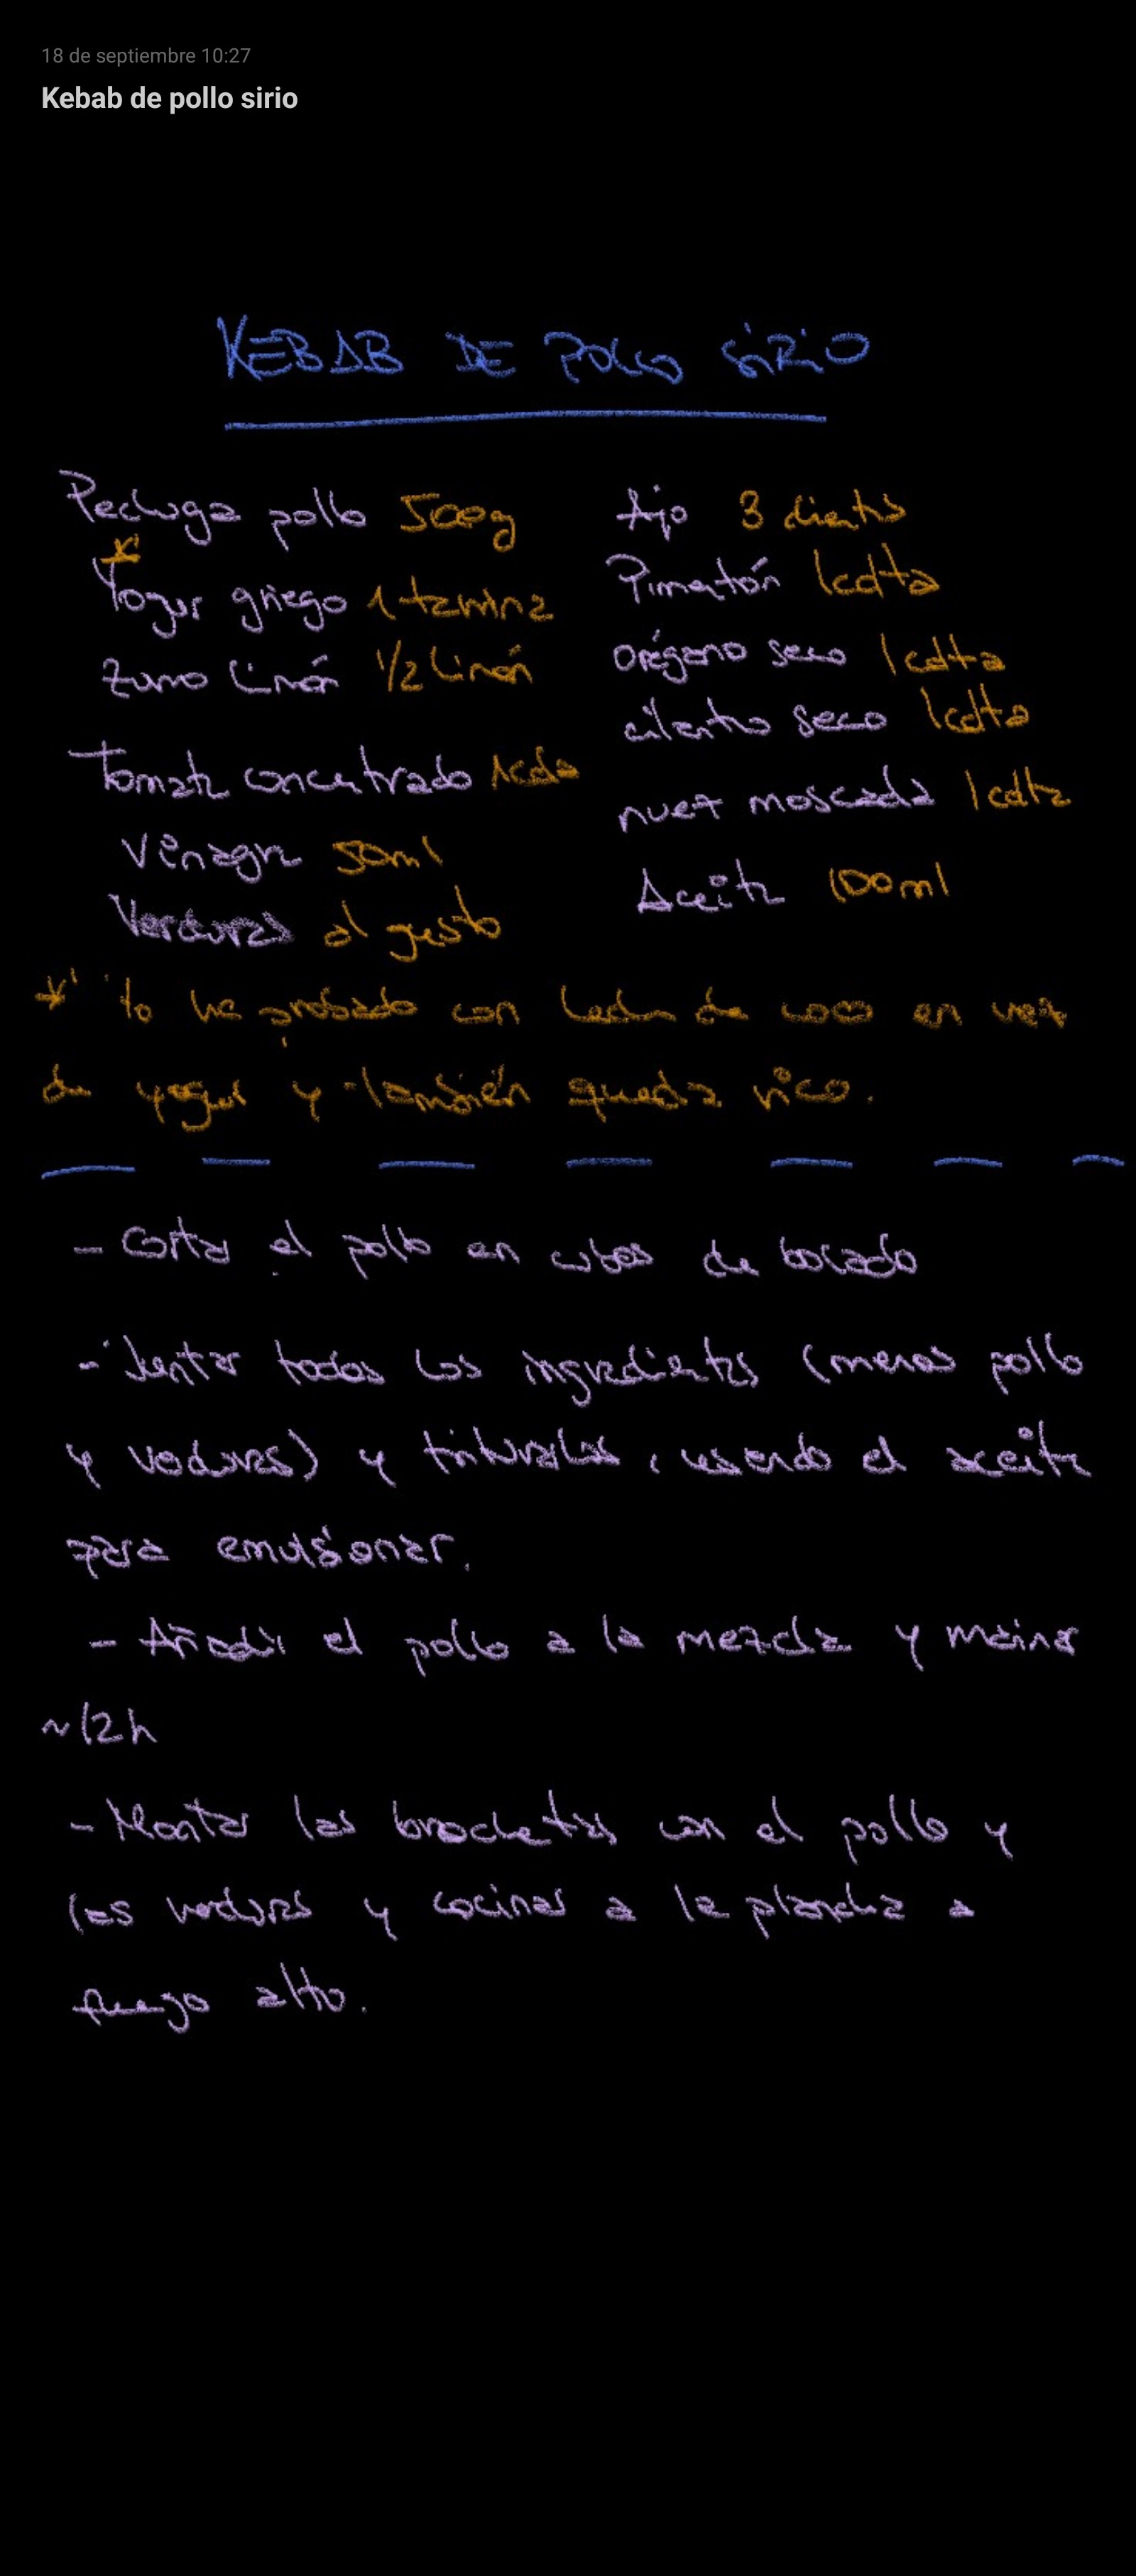 18 de septiembre 10:27
Kebab de pollo sirio
KEBAB DE POLLO SIRIO
Pechuga pollo 500g
*¹
Yogur griego 1 tarrina
Zumo limón 1/2 limón
Tomate concentrado 1cda
Vinagre 50ml
Verduras al gusto
Ajo 3 dientes
Pimentón 1cdta
Orégano seco 1cdta
cilantro seco 1cdta
nuez moscada 1cdta
Aceite 100ml
*¹ lo he probado con leche de coco en vez
de yogur y también queda rico.
- Cortar el pollo en cubos de bocado
- Juntar todos los ingredientes (menos pollo
y verduras) y triturarlos, usando el aceite
para emulsionar.
- Añadir el pollo a la mezcla y marinar
~12h
- Montar las brochetas con el pollo y
las verduras y cocinar a la plancha a
fuego alto.